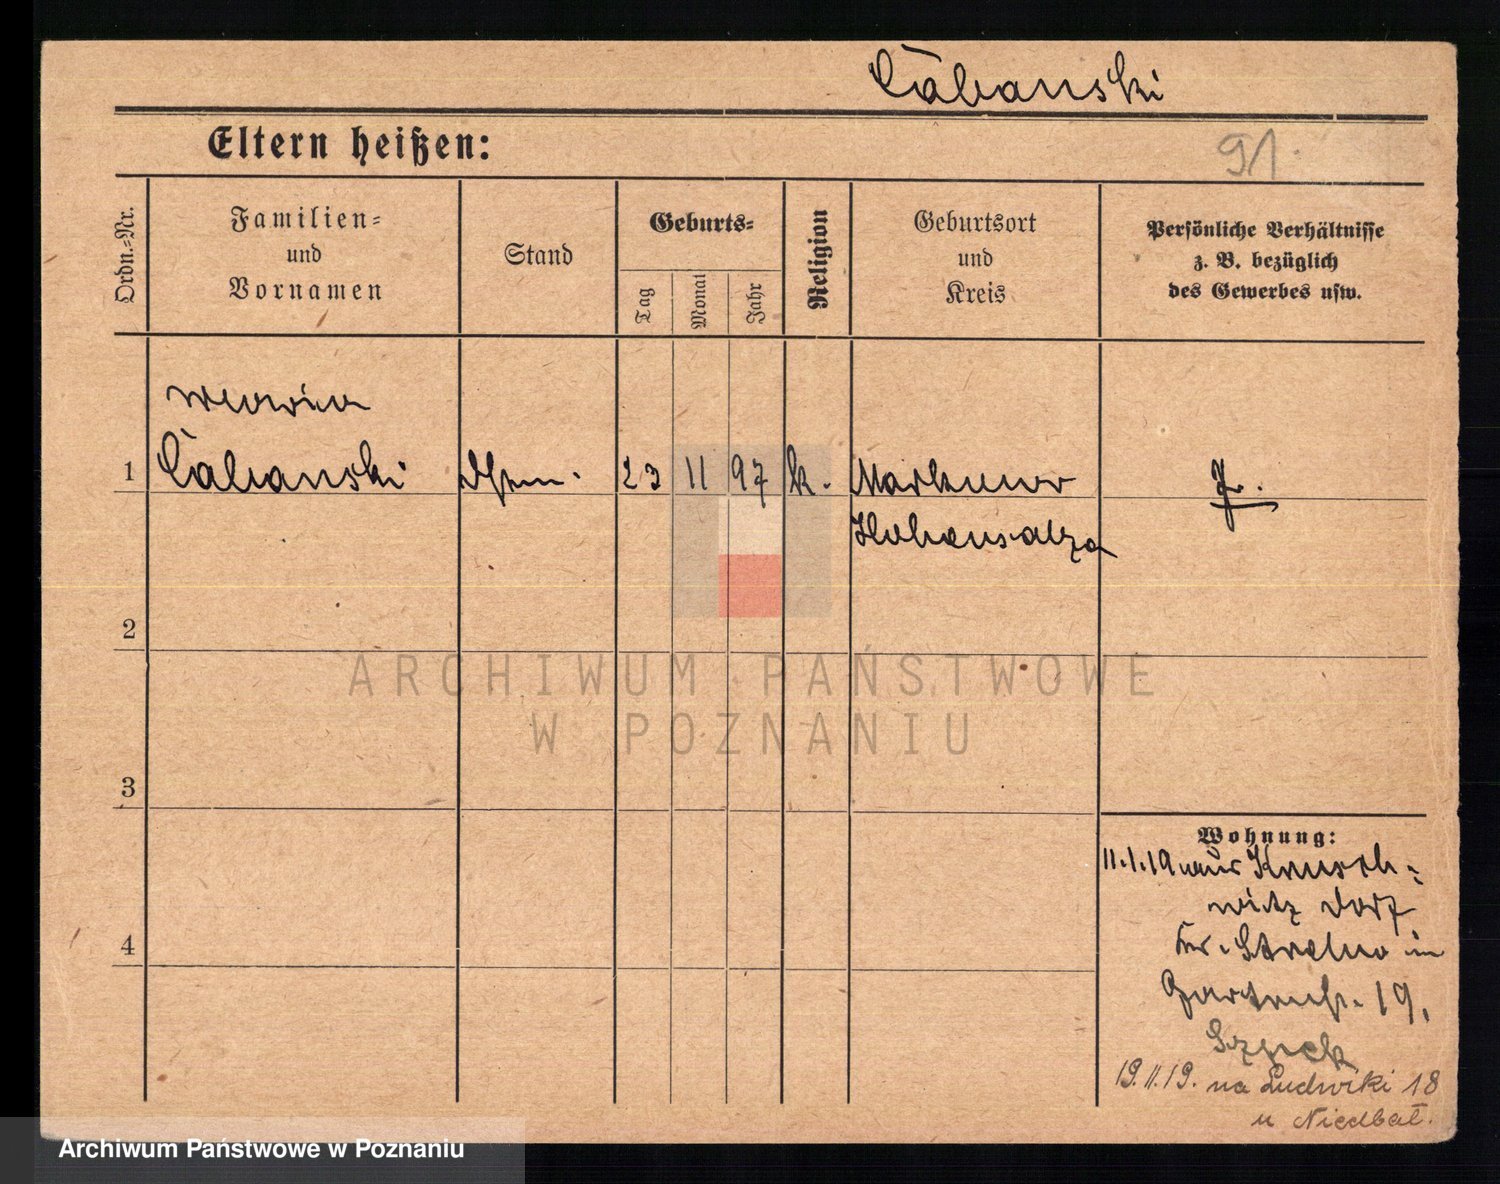 Cabanski
91.
Eltern heißen:
Ordn.=Nr.
Familien=
und
Vornamen
Stand
Geburts=
Tag
Monat
Jahr
Religion
Geburtsort
und
Kreis
Persönliche Verhältnisse
z. B. bezüglich
des Gewerbes usw.
1
Cabanski
23 11 97 k.
Hohensalza
2
3
4
Wohnung:
11.1.19 aus Krusch=
witz Dorf
Kr. Strelno in
Gartenstr. 19,
19.11.19. na Ludwiki 18
u Niedbał.
ARCHIWUM PAŃSTWOWE
W POZNANIU
Archiwum Państwowe w Poznaniu